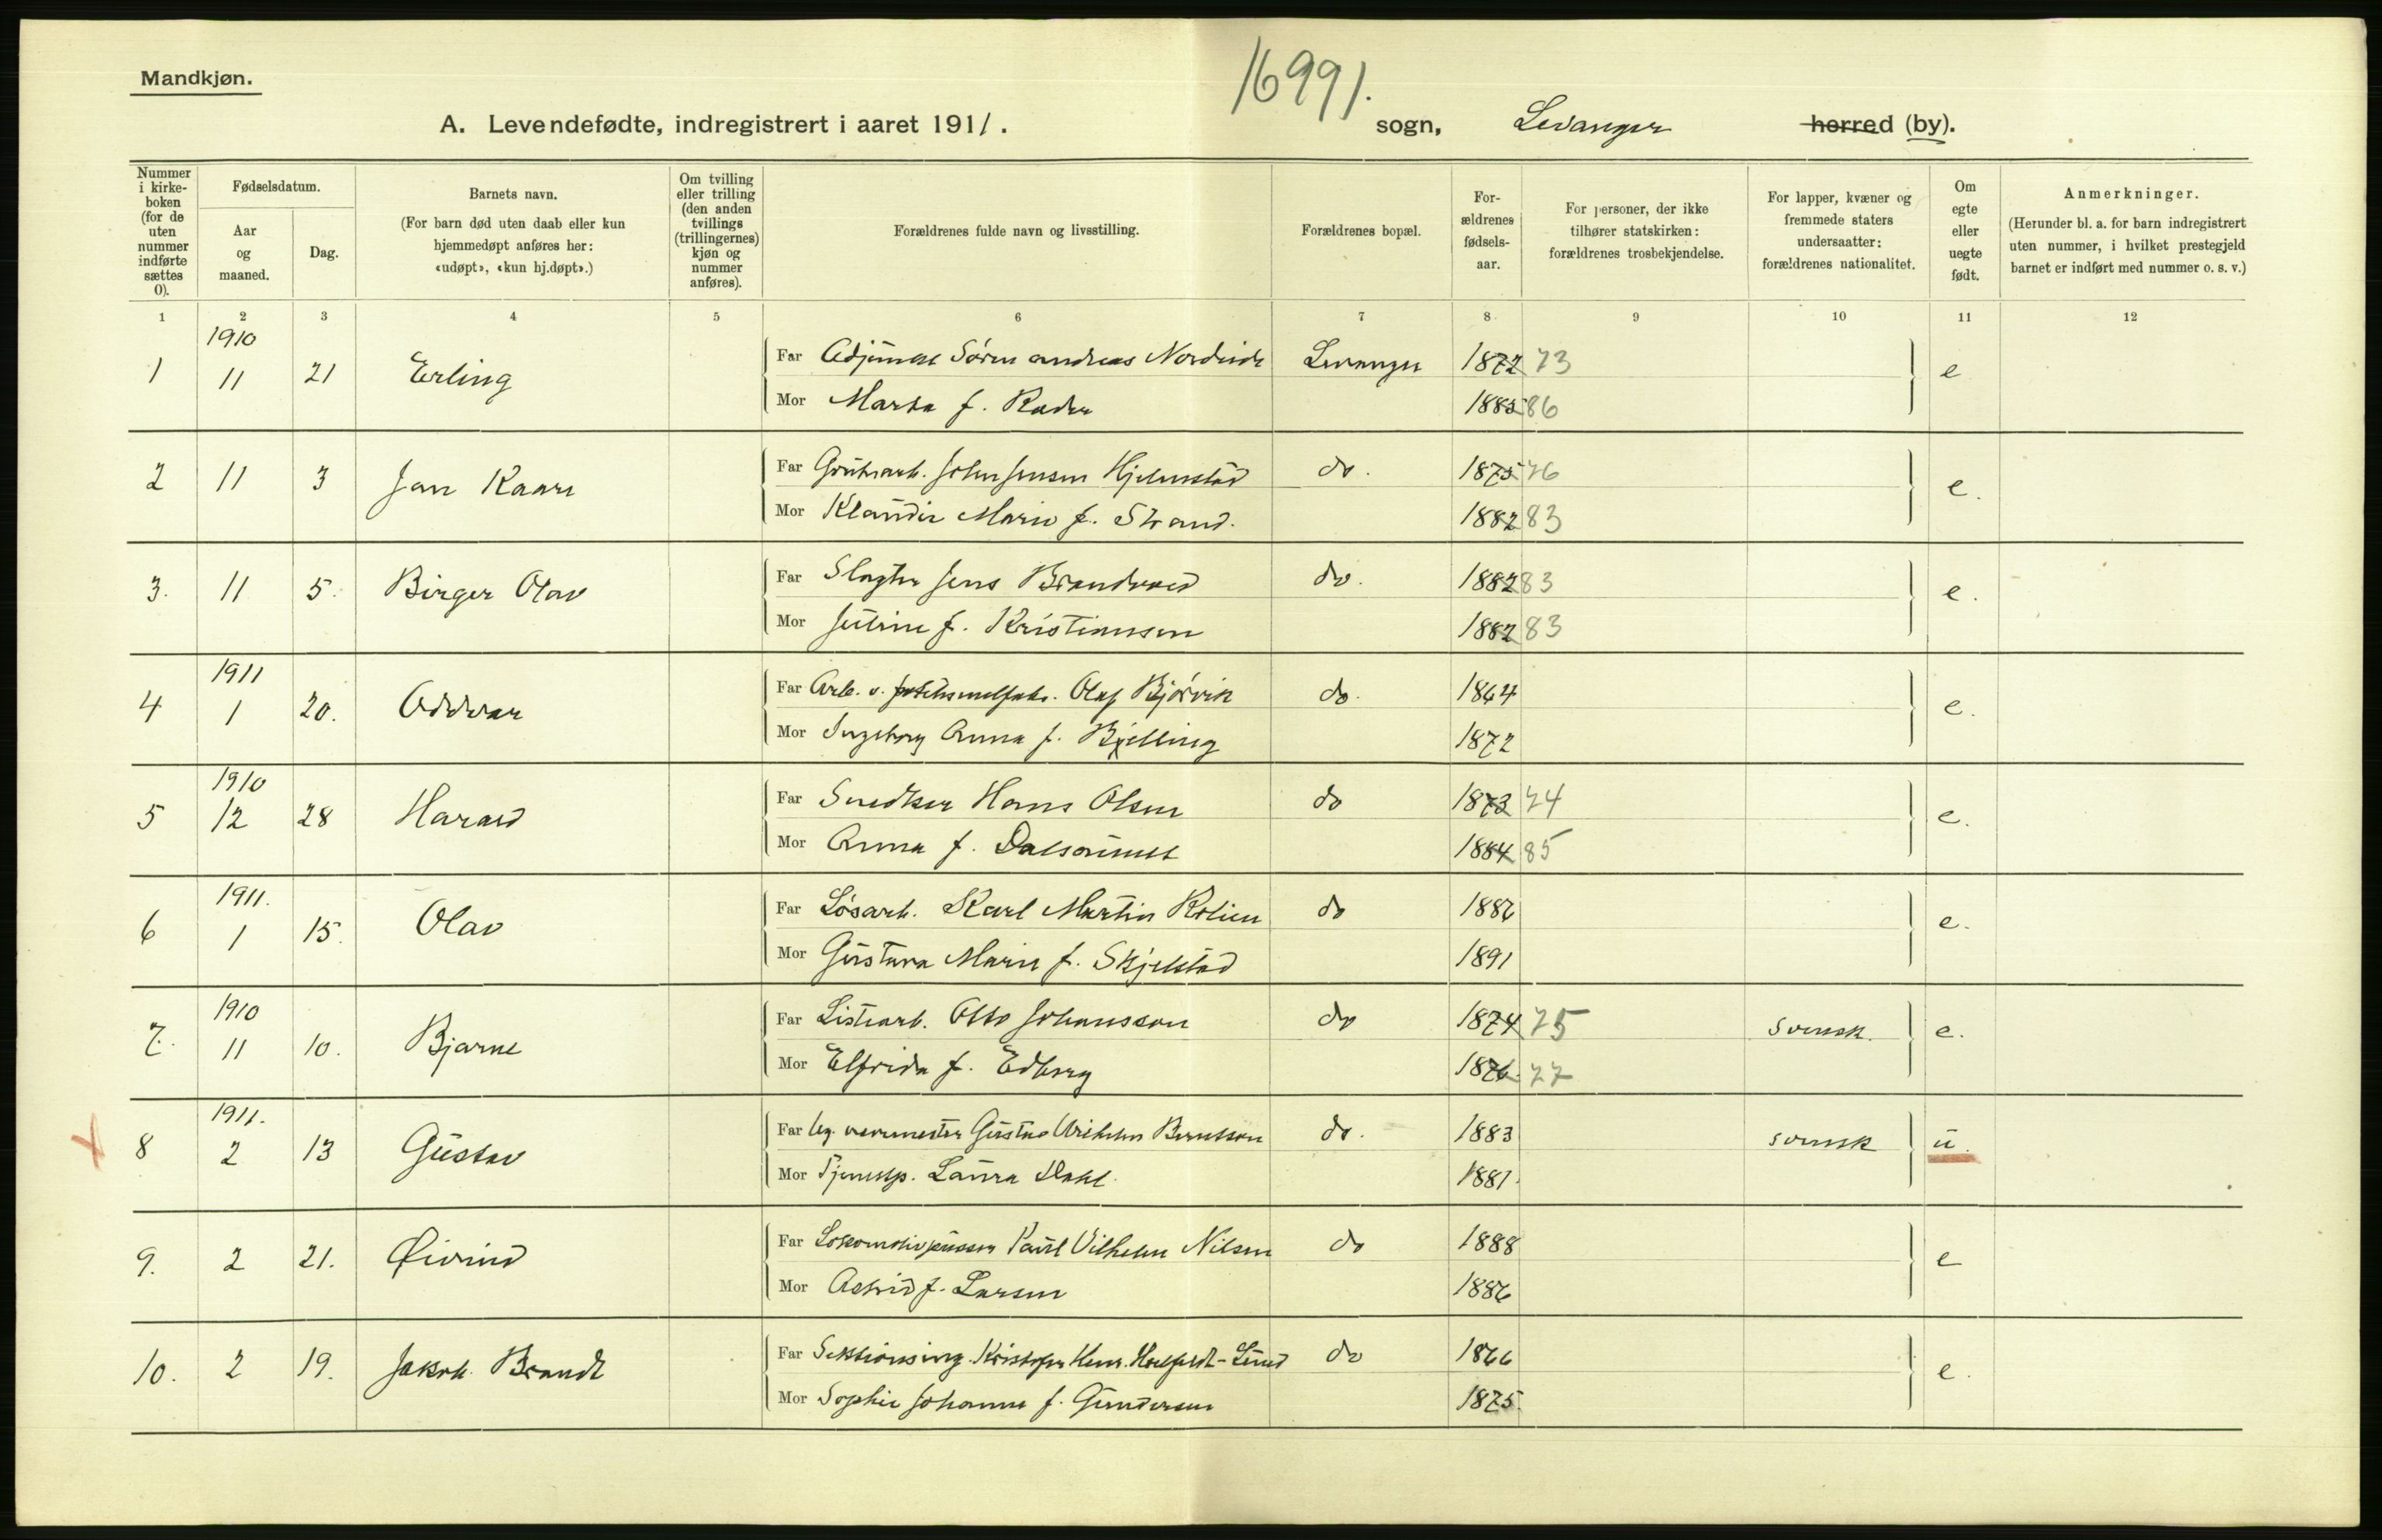 Mandkjøn.
16991.
A. Levendefødte, indregistrert i aaret 1911.
sogn, Levanger herred (by).
Nummer i kirke-boken (for de uten nummer indførte sættes 0).
Fødselsdatum.
Aar og maaned.
Dag.
Barnets navn.
(For barn død uten daab eller kun hjemmedøpt anføres her: «udøpt», «kun hj.døpt».)
Om tvilling eller trilling (den anden tvillings (trillingernes) kjøn og nummer anføres).
Forældrenes fulde navn og livsstilling.
Forældrenes bopæl.
For-ældrenes fødsels-aar.
For personer, der ikke tilhører statskirken: forældrenes trosbekjendelse.
For lapper, kvæner og fremmede staters undersaatter: forældrenes nationalitet.
Om egte eller uegte født.
Anmerkninger.
(Herunder bl. a. for barn indregistrert uten nummer, i hvilket prestegjeld barnet er indført med nummer o. s. v.)
1 2 3 4 5 6 7 8 9 10 11 12
1910
1 11 21 Erling Far Adjunkt Søren Andreas Nordeide Levanger 1872 73 e
Mor Marta f. Rader 1885 86
2 11 3 Jan Kaare Far Grubearb. John Jensen Hjelmstad do. 1875 76 e.
Mor Klaudie Marie f. Strand. 1882 83
3. 11 5. Birger Olav Far Slagter Jens Brandvold do. 1882 83 e.
Mor Juline f. Kristiansen 1882 83
1911
4 1 20. Oddvar Far Arb. v. Olaf Bjørvik do. 1864 e.
Mor Ingeborg Anna f. Bjelling 1872
1910
5 12 28 Harald Far Snedker Hans Olsen do 1873 74 e.
Mor Anna f. Dalsaunet 1884 85
1911.
6 1 15. Olav Far Løsarb. Karl Martin Rolien do 1886 e.
Mor Gustava Marie f. Skjelstad 1891
1910
7. 11 10. Bjarne Far Listearb. Otto Johansson do 1874 75 svensk. e.
Mor Elfrida f. Edberg 1876. 77
1911.
8 2 13 Gustav Far Ug. Gustav Vilhelm Berntsson do. 1883 svensk u.
Mor Tjenestp. Laura Dahl. 1881.
9. 2 21. Øivind Far Lokomotivpusser Paul Vilhelm Nilsen do 1888 e
Mor Astrid f. Larsen 1886
10. 2 19. Jakob Brandt Far Sektionsing. Kristofer Henr. Holfeldt-Lund do 1866 e.
Mor Sophie Johanne f. Gundersen 1875.